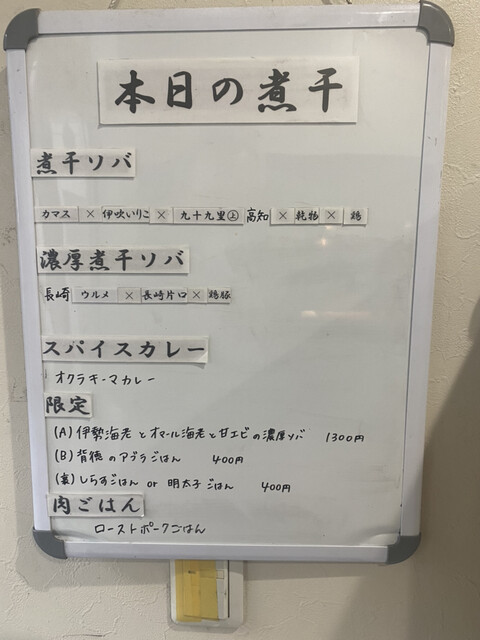 本日の煮干
煮干ソバ
カマス × 伊吹いりこ × 九十九里㊤ 高知 × 乾物 × 鶏
濃厚煮干ソバ
長崎 ウルメ × 長崎片口 × 鶏豚
スパイスカレー
オクラキーマカレー
限定
(A) 伊勢海老とオマール海老と甘エビの濃厚ソバ 1300円
(B) 背徳のアブラごはん 400円
(裏) しらすごはん or 明太子ごはん 400円
肉ごはん
ローストポークごはん